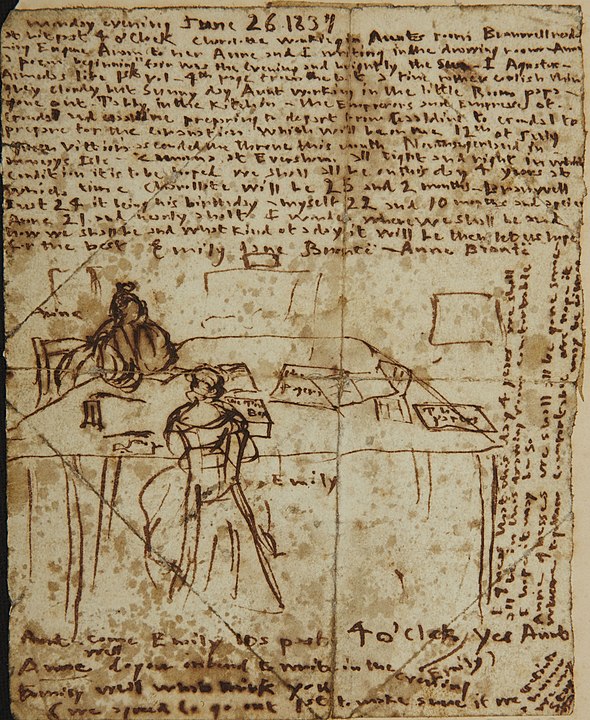 Monday evening June 26 1837
a bit past 4 o'Clock Charolotte working in Aunts room Branwell reading
Eugene Aram to her Anne and I writing in the drawing room - Anne
a poem beginning fair was the evening and brightly the sun - I Agustus -
Almedas life 1st vol - 4th page from the last a fine
day cloudy but Sunny day Aunt working in the little Room papa -
gone out. Tabby in the Kitchin - the Emperors and Empresses of
Gondal and preparing to depart from Gaaldine to Gondal to
prepare for the coranation which will be on the 12th of July
Queen Vittoria ascended the throne this month. Northangerland in
Monceys Isle - Zamorna at Eversham. all tight and right in which
condition it is to be hoped we shall all be on this day 4 years at
which time Charollote will be 25 and 2 months - Branwell
just 24 it being his birthday - myself 22 and 10 months and a peice
Anne 21 and nearly a half I wonder where we shall be and
how we shall be and what kind of a day it will be then let us hope
for the best Emily Jane Brontë - Anne Brontë
Anne
The
papers
The
Tin Box
Emily
I guess that this day 4 years we shall
all be in this drawing room comfortable
I hope it may be so
Anne guesses we shall all be gone somewhere
comfortable
Aunt. come Emily Its past 4 o'Clock. Yes Aunt
Anne well do you intend to write in the evening
Emily well what think you
(we agreed to go out 1st to make sure if we